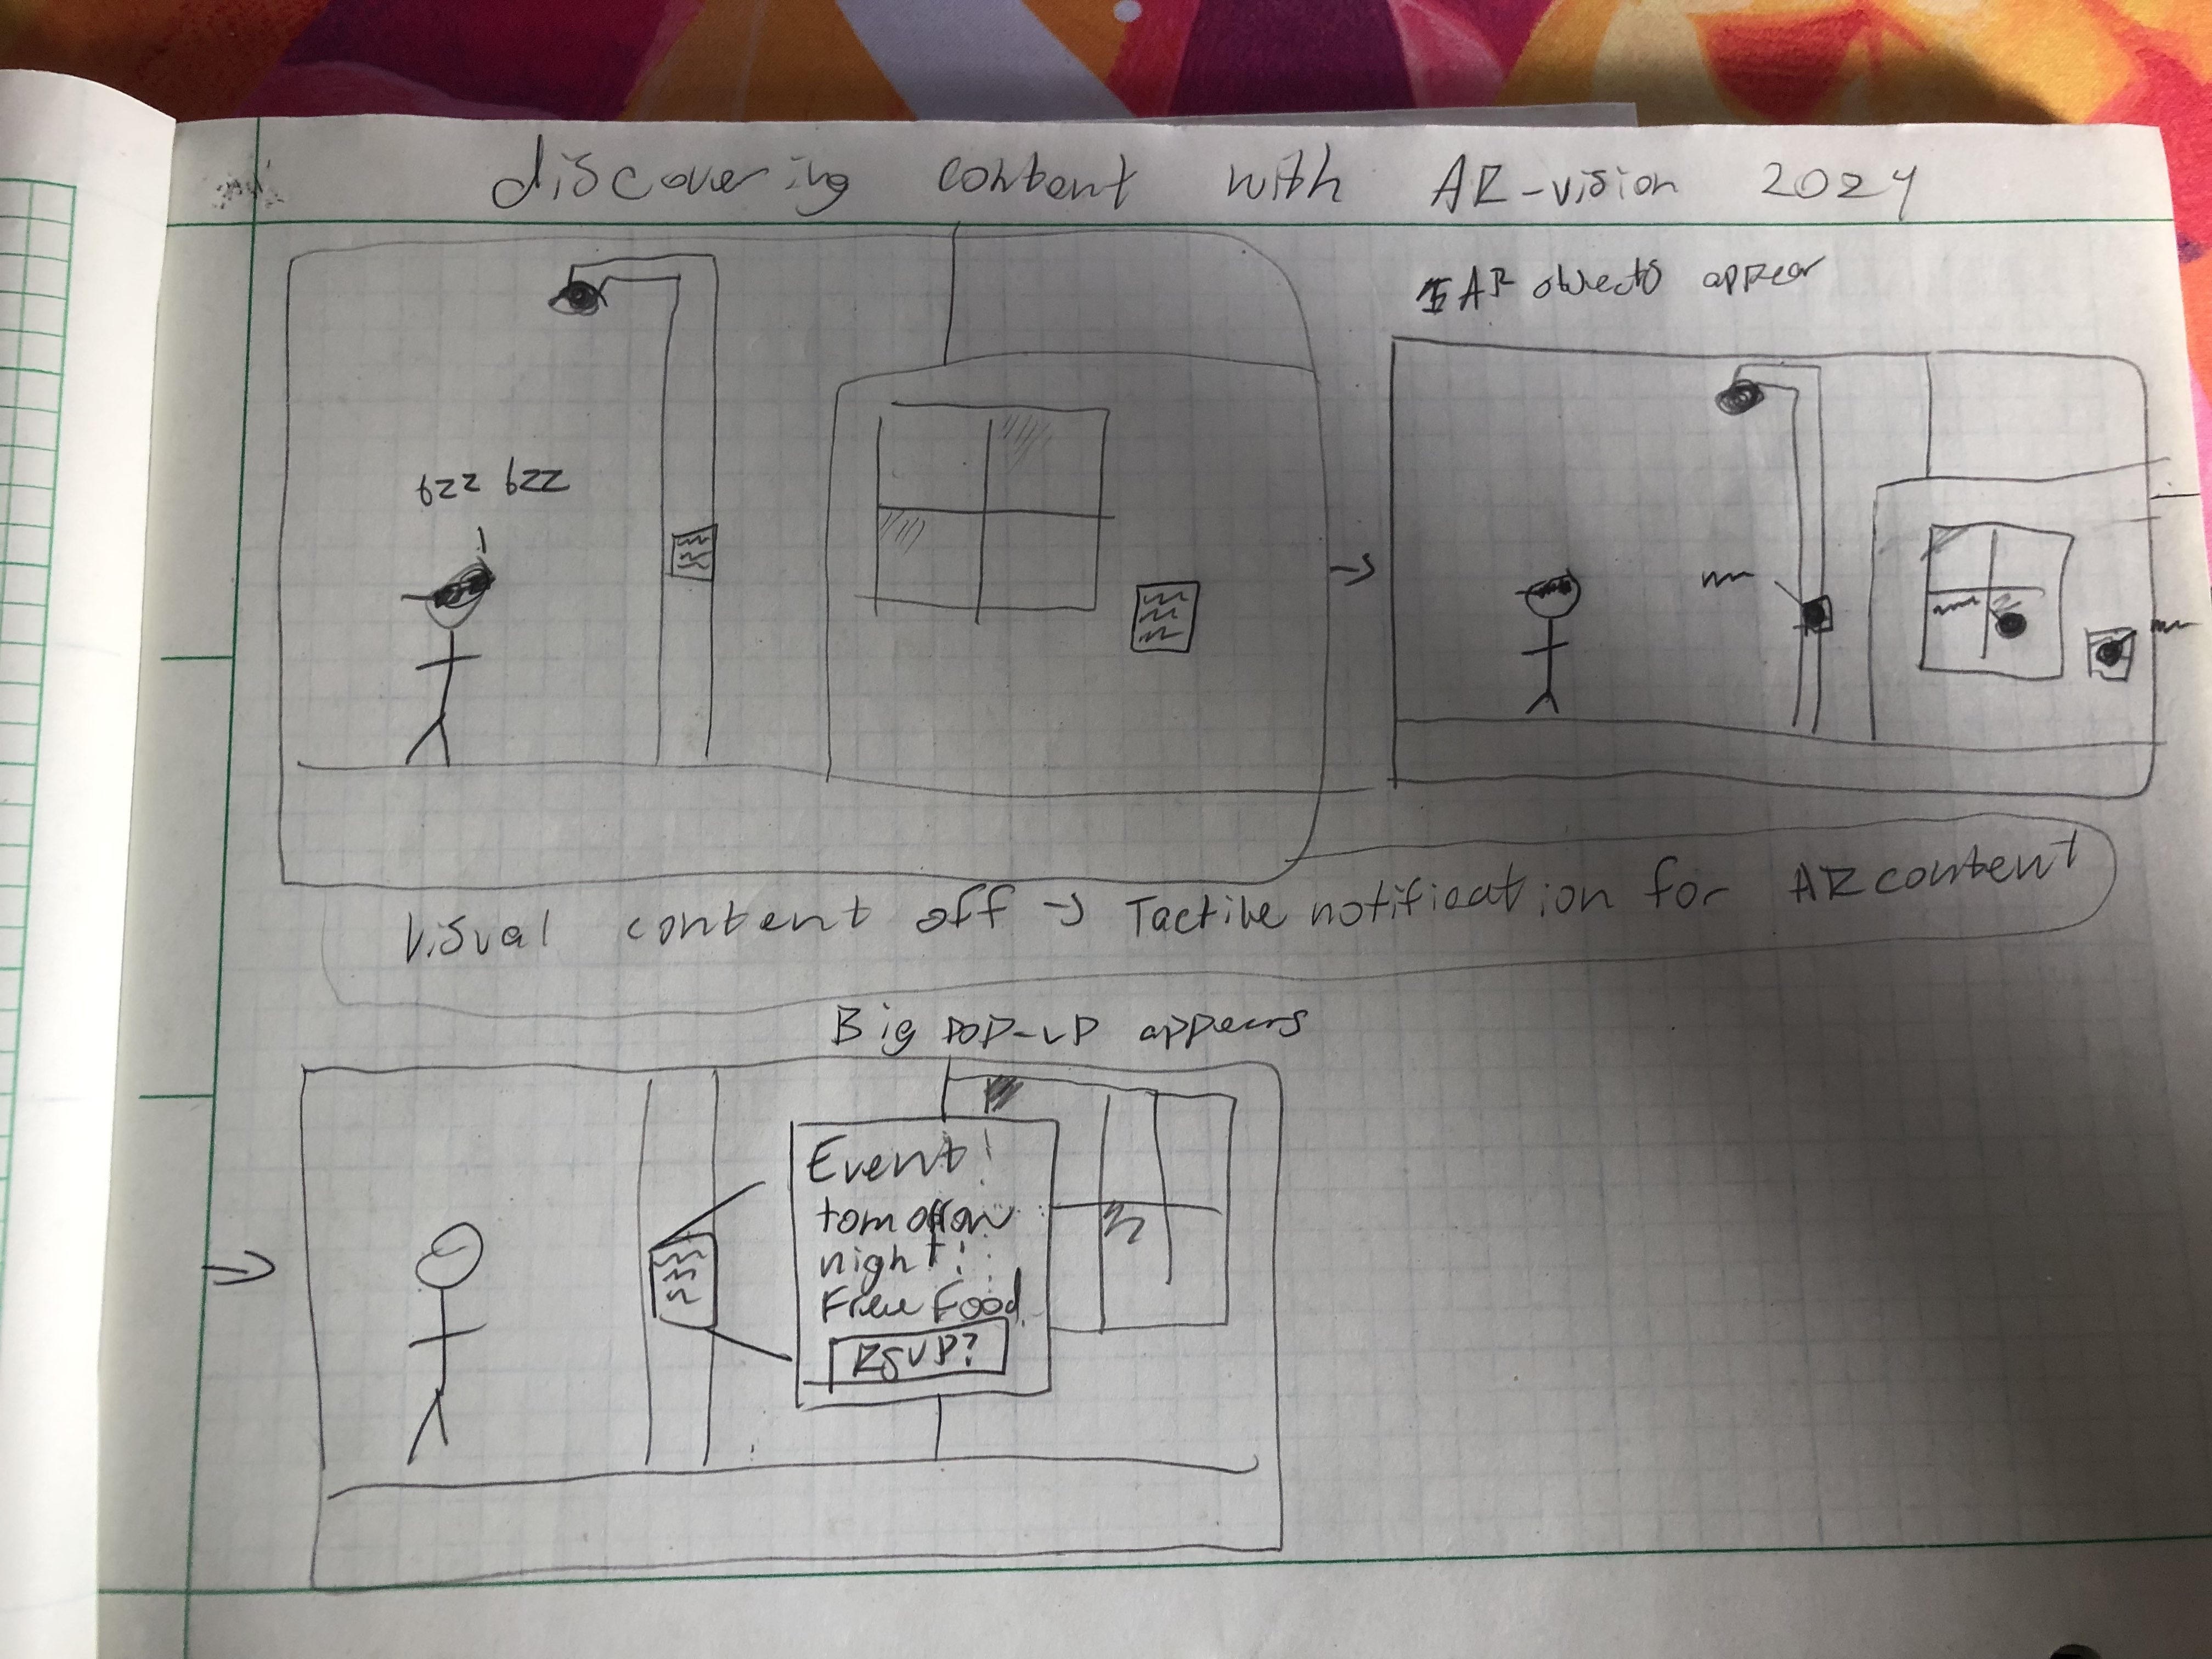 discovering content with AR-vision 2024
AR objects appear
bzz bzz
Visual content off → Tactile notification for AR content
Big POP-UP appears
Event!
tomorrow
night!
Free Food
RSVP?